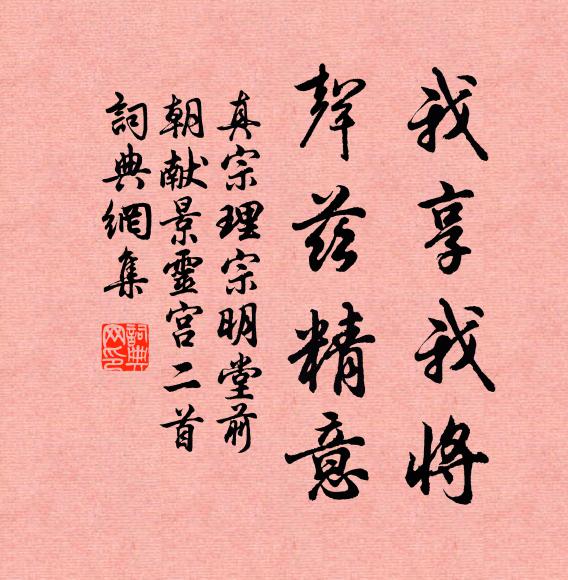 我享我將
罄茲精意
真宗理宗明堂前
朝献景靈宮二首
詞典網集
詞典
网印